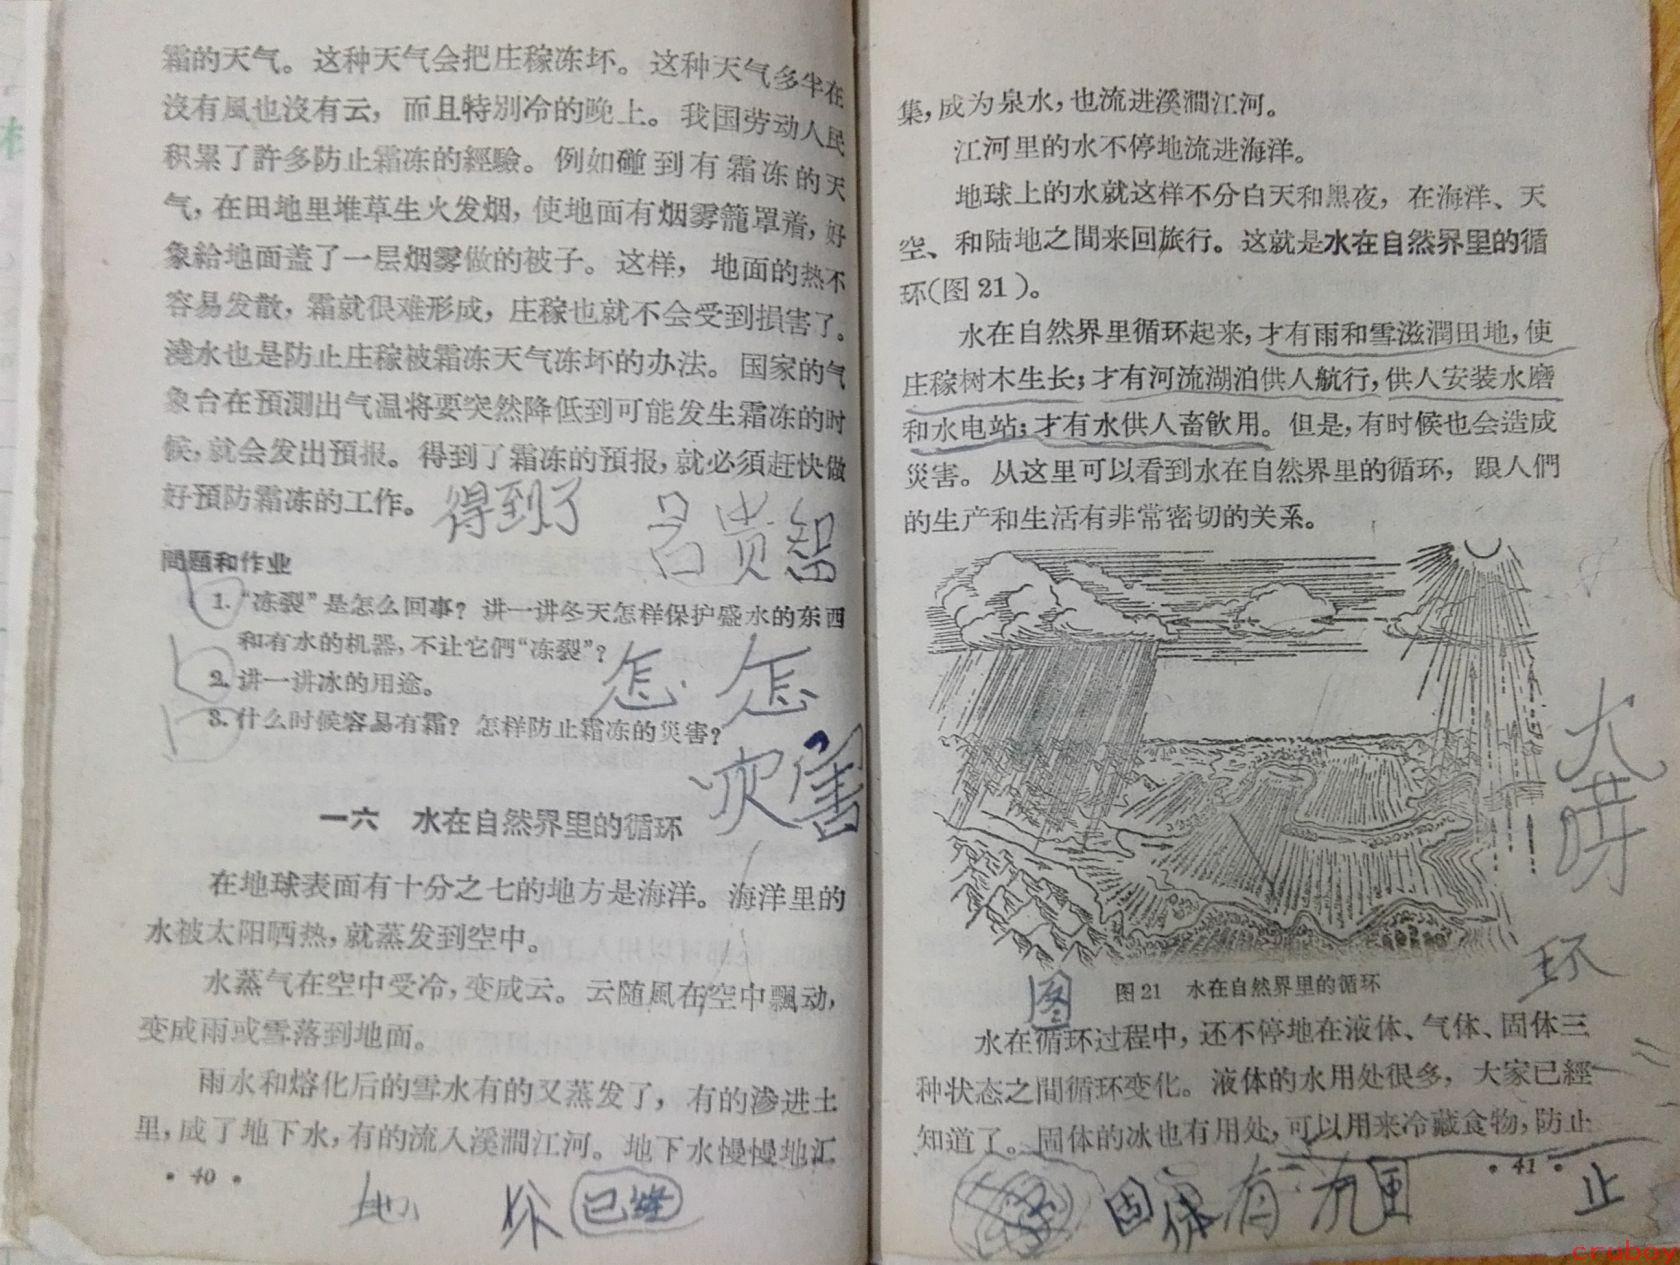 霜的天气。这种天气会把庄稼冻坏。这种天气多半在
沒有風也沒有云，而且特別冷的晚上。我国劳动人民
积累了許多防止霜冻的經驗。例如碰到有霜冻的天
气，在田地里堆草生火发烟，使地面有烟雾籠罩着，好
象給地面盖了一层烟雾做的被子。这样，地面的热不
容易发散，霜就很难形成，庄稼也就不会受到損害了。
澆水也是防止庄稼被霜冻天气冻坏的办法。国家的气
象台在預測出气温将要突然降低到可能发生霜冻的时
候，就会发出預报。得到了霜冻的預报，就必須赶快做
好預防霜冻的工作。
得到了 吕贵智
問題和作业
1. “冻裂”是怎么回事？讲一讲冬天怎样保护盛水的东西
和有水的机器，不让它們“冻裂”？
2. 讲一讲冰的用途。
怎 怎
3. 什么时候容易有霜？怎样防止霜冻的災害？
灾害
一六 水在自然界里的循环
在地球表面有十分之七的地方是海洋。海洋里的
水被太阳晒热，就蒸发到空中。
水蒸气在空中受冷，变成云。云随風在空中飄动，
变成雨或雪落到地面。
雨水和熔化后的雪水有的又蒸发了，有的滲进土
里，成了地下水，有的流入溪澗江河。地下水慢慢地汇
• 40 •
地 坏 已經
集，成为泉水，也流进溪澗江河。
江河里的水不停地流进海洋。
地球上的水就这样不分白天和黑夜，在海洋、天
空、和陆地之間来回旅行。这就是水在自然界里的循
环（图 21）。
水在自然界里循环起来，才有雨和雪滋潤田地，使
庄稼树木生长；才有河流湖泊供人航行，供人安装水磨
和水电站；才有水供人畜飲用。但是，有时候也会造成
災害。从这里可以看到水在自然界里的循环，跟人們
的生产和生活有非常密切的关系。
环
图
图 21 水在自然界里的循环
水在循环过程中，还不停地在液体、气体、固体三
种状态之間循环变化。液体的水用处很多，大家已經
知道了。固体的冰也有用处，可以用来冷藏食物，防止
• 41 •
固体有 止
crubov